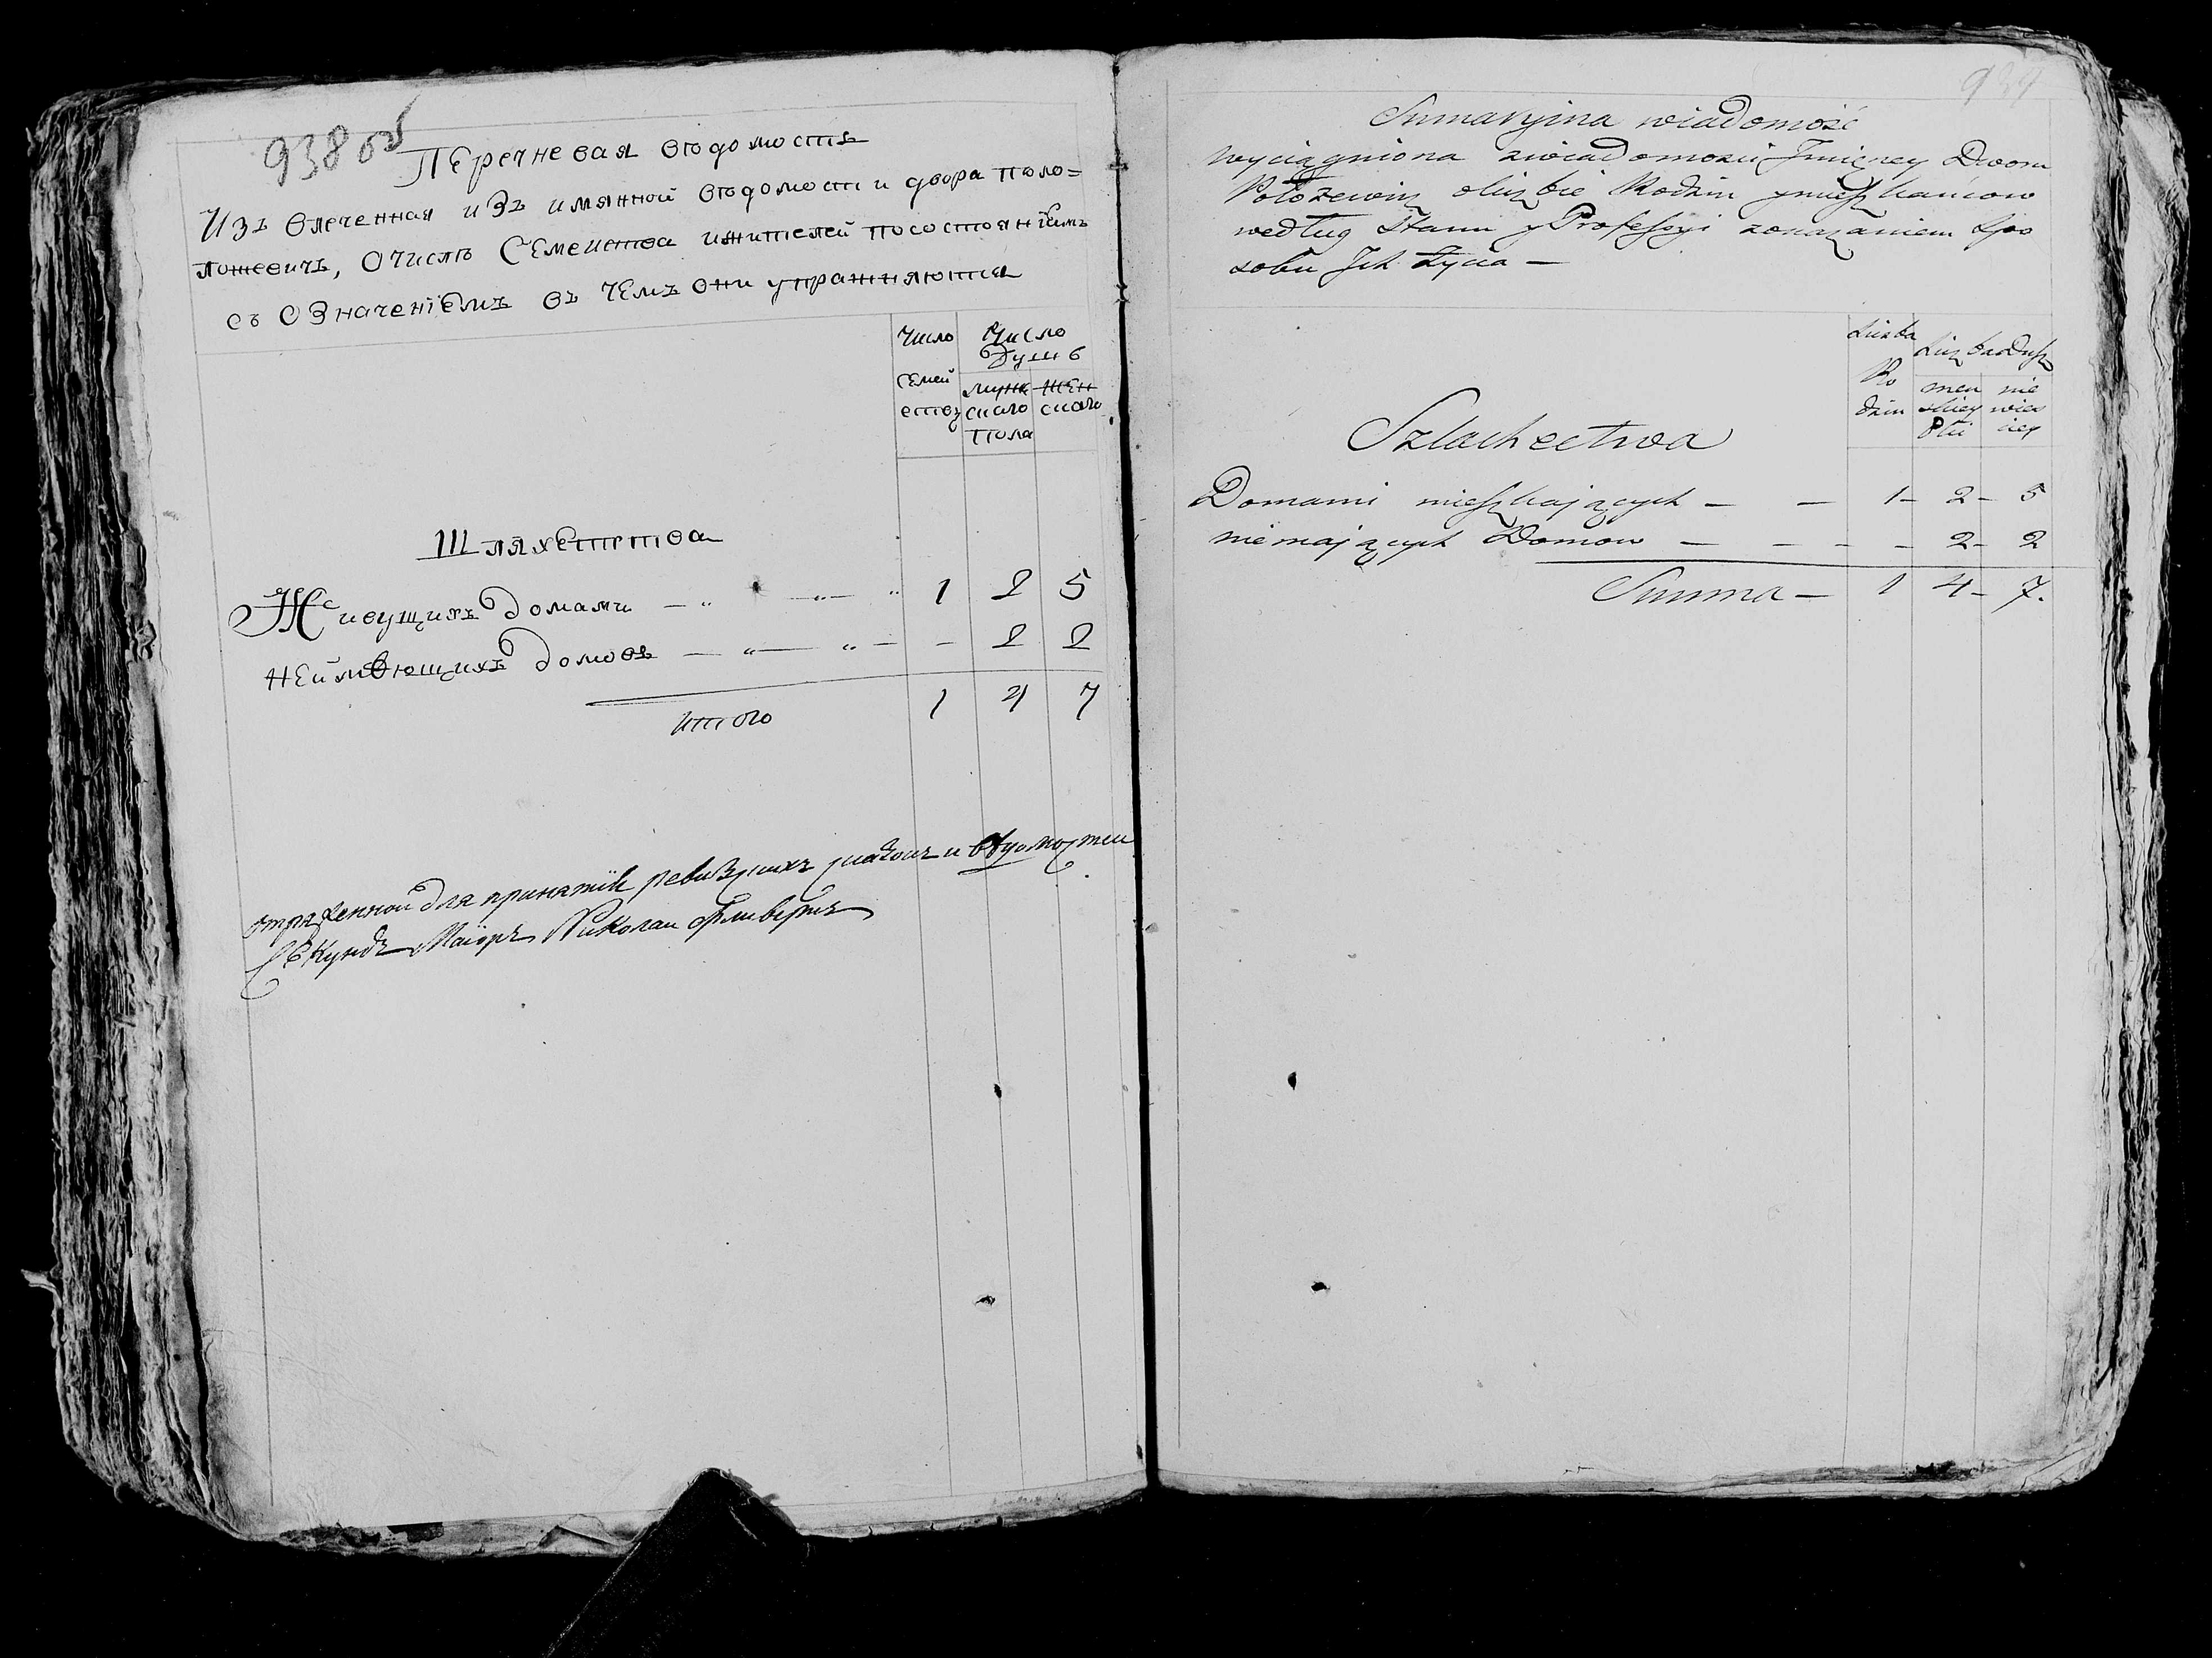 938 об
Перечневая вѣдомость
Изъ влеченная изъ имянной вѣдомости двора поло=
ложевичъ, очислѣ Семейства ижителей посостояніямъ
съ означеніемъ въ чемъ они упражняются
Число
семей
ствъ
Число
душъ
мужс
скаго
пола
жен
скаго
Шляхетства
Живущихъ домами — „ — „ — „ 1 2 5
неимѣющихъ домовъ — „ — „ — — 2 2
итого 1 4 7
отряженной для принятія ревизскихъ сказокъ и вѣдомостей
Секундъ Маіоръ Николай
939
Sumaryina wiadomość
wyciągniona zwiadomości Jmięney Dworu
Położewicz oliczbie Rodzin ymieszkańcow
według Stanu y Professyi zokazaniem Spo
sobu Jch Życia —
Liczba
Ro
dzin
Liczba Dusz
męn
skiey
Płci
nie
wies
ciey
Szlachectwa
Domami mieszkaiących — — 1 — 2 — 5
niemaiących Domow — — — — 2 — 2
Summa — 1 4 — 7.